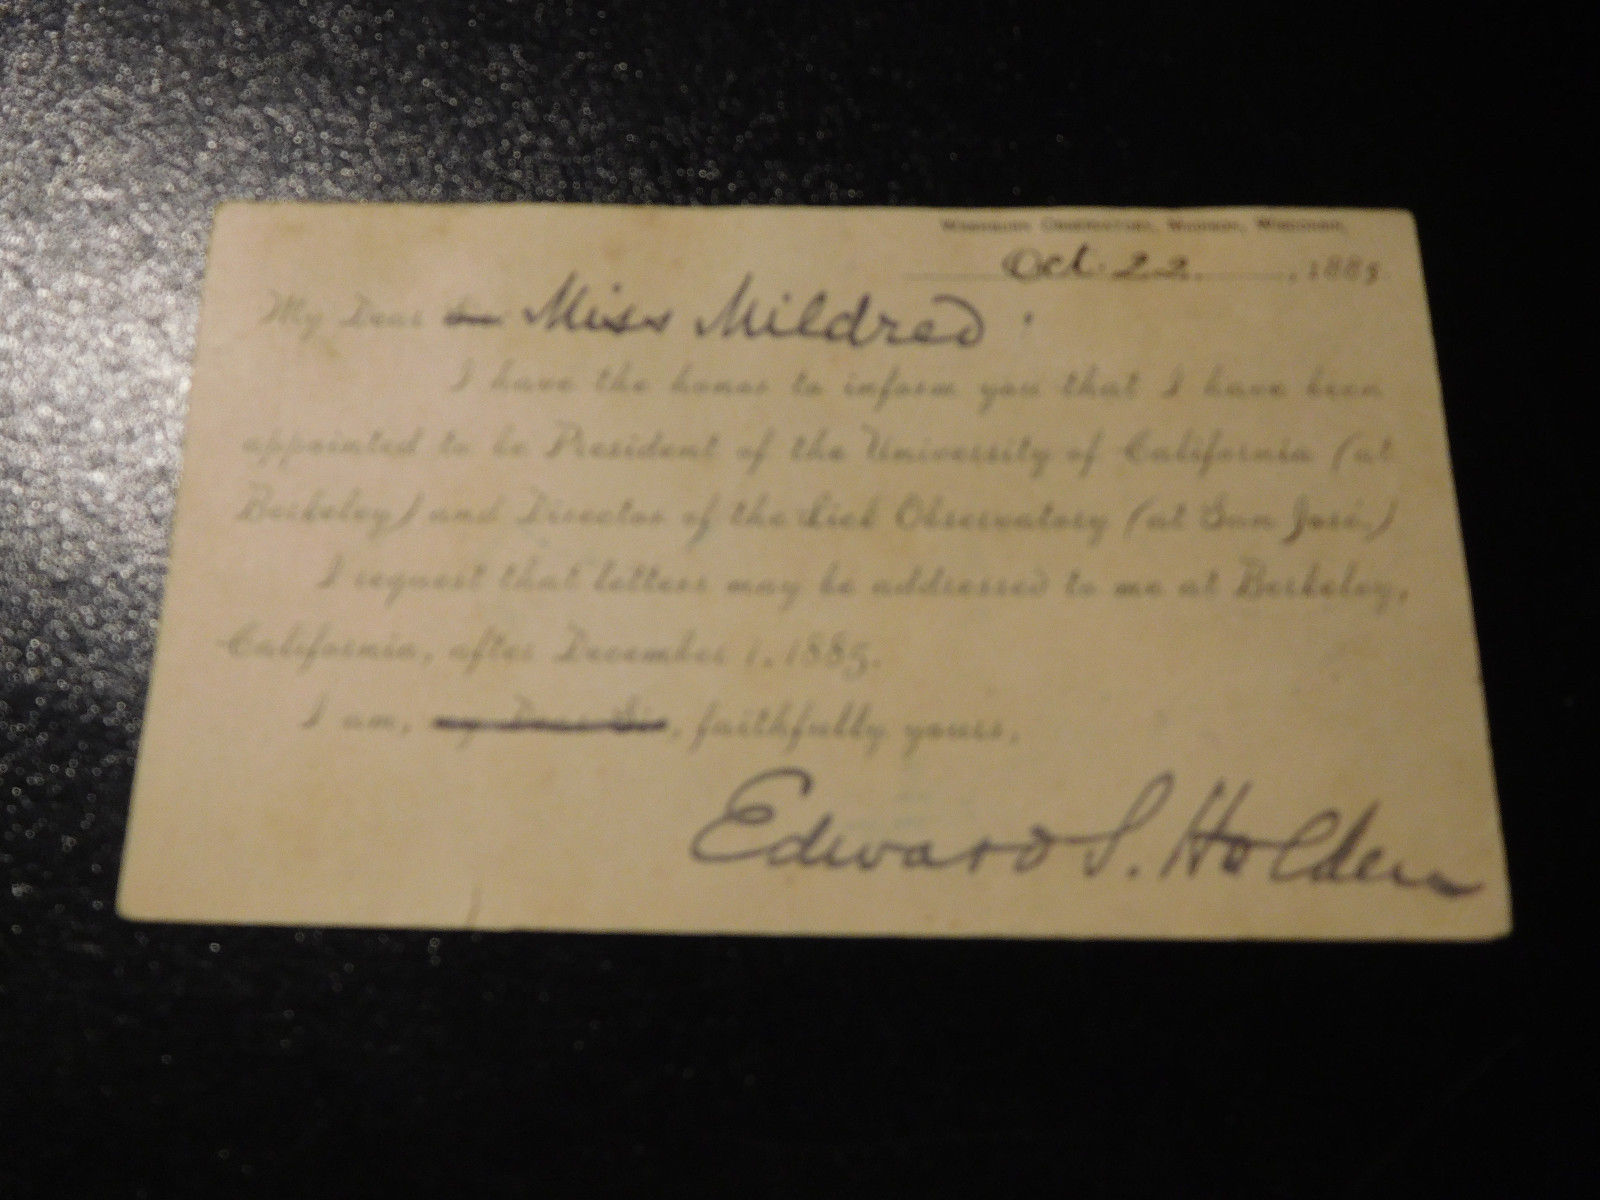 Washburn Observatory, Madison, Wisconsin,
Oct. 22. , 1885.
My Dear Sir Miss Mildred:
I have the honor to inform you that I have been
appointed to be President of the University of California (at
Berkeley) and Director of the Lick Observatory (at San José.)
I request that letters may be addressed to me at Berkeley,
California, after December 1, 1885.
I am, my Dear Sir, faithfully yours,
Edward S. Holden